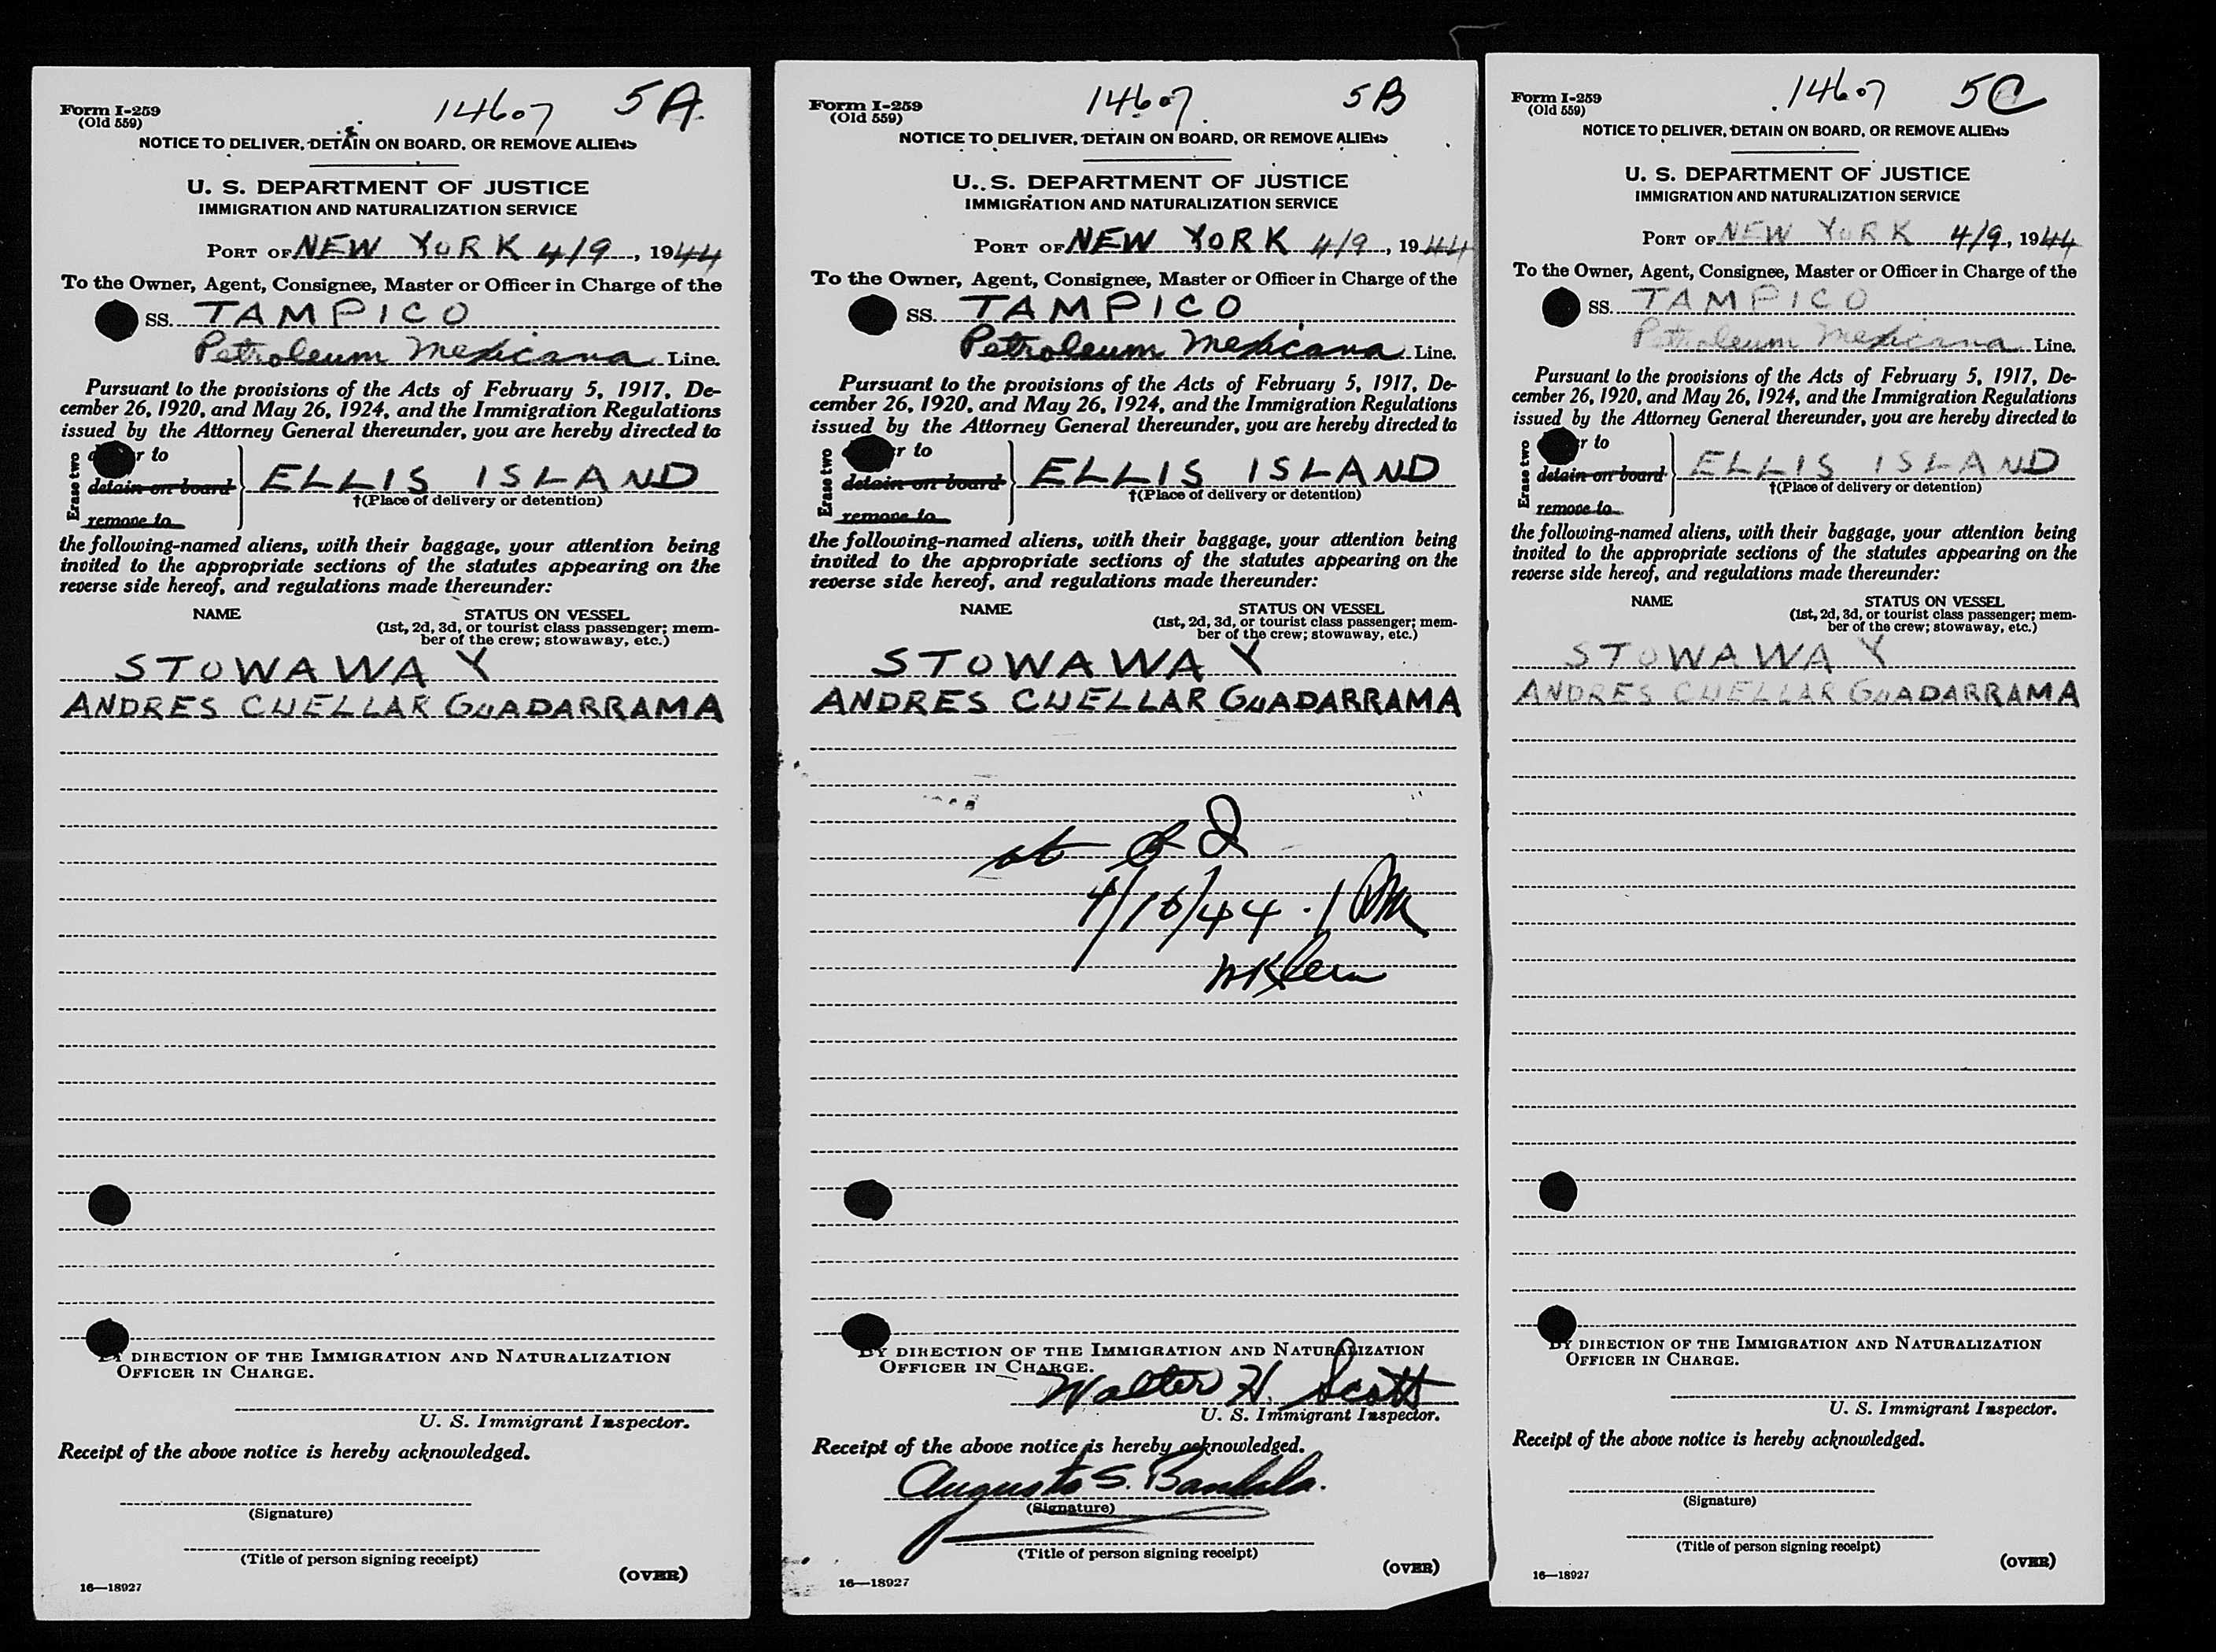 Form I-259
(Old 559)
14607 5A
NOTICE TO DELIVER, DETAIN ON BOARD, OR REMOVE ALIENS
U. S. DEPARTMENT OF JUSTICE
IMMIGRATION AND NATURALIZATION SERVICE
PORT OF NEW YORK 4/9, 1944
To the Owner, Agent, Consignee, Master or Officer in Charge of the
SS. TAMPICO
Petroleum Mexicana Line.
Pursuant to the provisions of the Acts of February 5, 1917, De-
cember 26, 1920, and May 26, 1924, and the Immigration Regulations
issued by the Attorney General thereunder, you are hereby directed to
Erase two
r to
detain on board
remove to
ELLIS ISLAND
†(Place of delivery or detention)
the following-named aliens, with their baggage, your attention being
invited to the appropriate sections of the statutes appearing on the
reverse side hereof, and regulations made thereunder:
NAME STATUS ON VESSEL
(1st, 2d, 3d, or tourist class passenger; mem-
ber of the crew; stowaway, etc.)
STOWAWAY
ANDRES CUELLAR GUADARRAMA
BY DIRECTION OF THE IMMIGRATION AND NATURALIZATION
OFFICER IN CHARGE.
U. S. Immigrant Inspector.
Receipt of the above notice is hereby acknowledged.
(Signature)
(Title of person signing receipt)
(OVER)
16—18927
Form I-259
(Old 559)
14607 5B
NOTICE TO DELIVER, DETAIN ON BOARD, OR REMOVE ALIENS
U. S. DEPARTMENT OF JUSTICE
IMMIGRATION AND NATURALIZATION SERVICE
PORT OF NEW YORK 4/9, 1944
To the Owner, Agent, Consignee, Master or Officer in Charge of the
SS. TAMPICO
Petroleum Mexicana Line.
Pursuant to the provisions of the Acts of February 5, 1917, De-
cember 26, 1920, and May 26, 1924, and the Immigration Regulations
issued by the Attorney General thereunder, you are hereby directed to
Erase two
r to
detain on board
remove to
ELLIS ISLAND
†(Place of delivery or detention)
the following-named aliens, with their baggage, your attention being
invited to the appropriate sections of the statutes appearing on the
reverse side hereof, and regulations made thereunder:
NAME STATUS ON VESSEL
(1st, 2d, 3d, or tourist class passenger; mem-
ber of the crew; stowaway, etc.)
STOWAWAY
ANDRES CUELLAR GUADARRAMA
4/10/44 . 1 PM
BY DIRECTION OF THE IMMIGRATION AND NATURALIZATION
OFFICER IN CHARGE.
Walter H. Scott
U. S. Immigrant Inspector.
Receipt of the above notice is hereby acknowledged.
Augusto S.
(Signature)
(Title of person signing receipt)
(OVER)
16—18927
Form I-259
(Old 559)
14607 5C
NOTICE TO DELIVER, DETAIN ON BOARD, OR REMOVE ALIENS
U. S. DEPARTMENT OF JUSTICE
IMMIGRATION AND NATURALIZATION SERVICE
PORT OF NEW YORK 4/9, 1944
To the Owner, Agent, Consignee, Master or Officer in Charge of the
SS. TAMPICO
Petroleum Mexicana Line.
Pursuant to the provisions of the Acts of February 5, 1917, De-
cember 26, 1920, and May 26, 1924, and the Immigration Regulations
issued by the Attorney General thereunder, you are hereby directed to
Erase two
r to
detain on board
remove to
ELLIS ISLAND
†(Place of delivery or detention)
the following-named aliens, with their baggage, your attention being
invited to the appropriate sections of the statutes appearing on the
reverse side hereof, and regulations made thereunder:
NAME STATUS ON VESSEL
(1st, 2d, 3d, or tourist class passenger; mem-
ber of the crew; stowaway, etc.)
STOWAWAY
ANDRES CUELLAR GUADARRAMA
BY DIRECTION OF THE IMMIGRATION AND NATURALIZATION
OFFICER IN CHARGE.
U. S. Immigrant Inspector.
Receipt of the above notice is hereby acknowledged.
(Signature)
(Title of person signing receipt)
(OVER)
16—18927